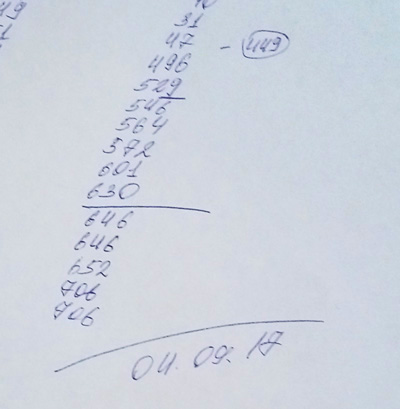 31
47 - 449
496
529
546
564
572
601
630
646
646
652
706
706
04.09.17